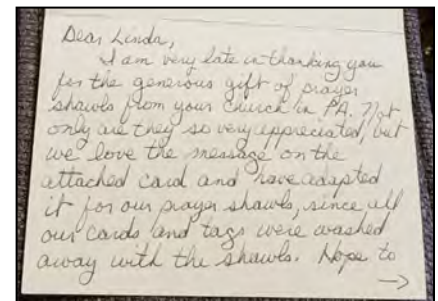 Dear Linda,
I am very late in thanking you
for the generous gift of prayer
shawls from your church in PA. Not
only are they so very appreciated, but
we love the message on the
attached card and have adapted
it for our prayer shawls, since all
our cards and tags were washed
away with the shawls. Hope to
→